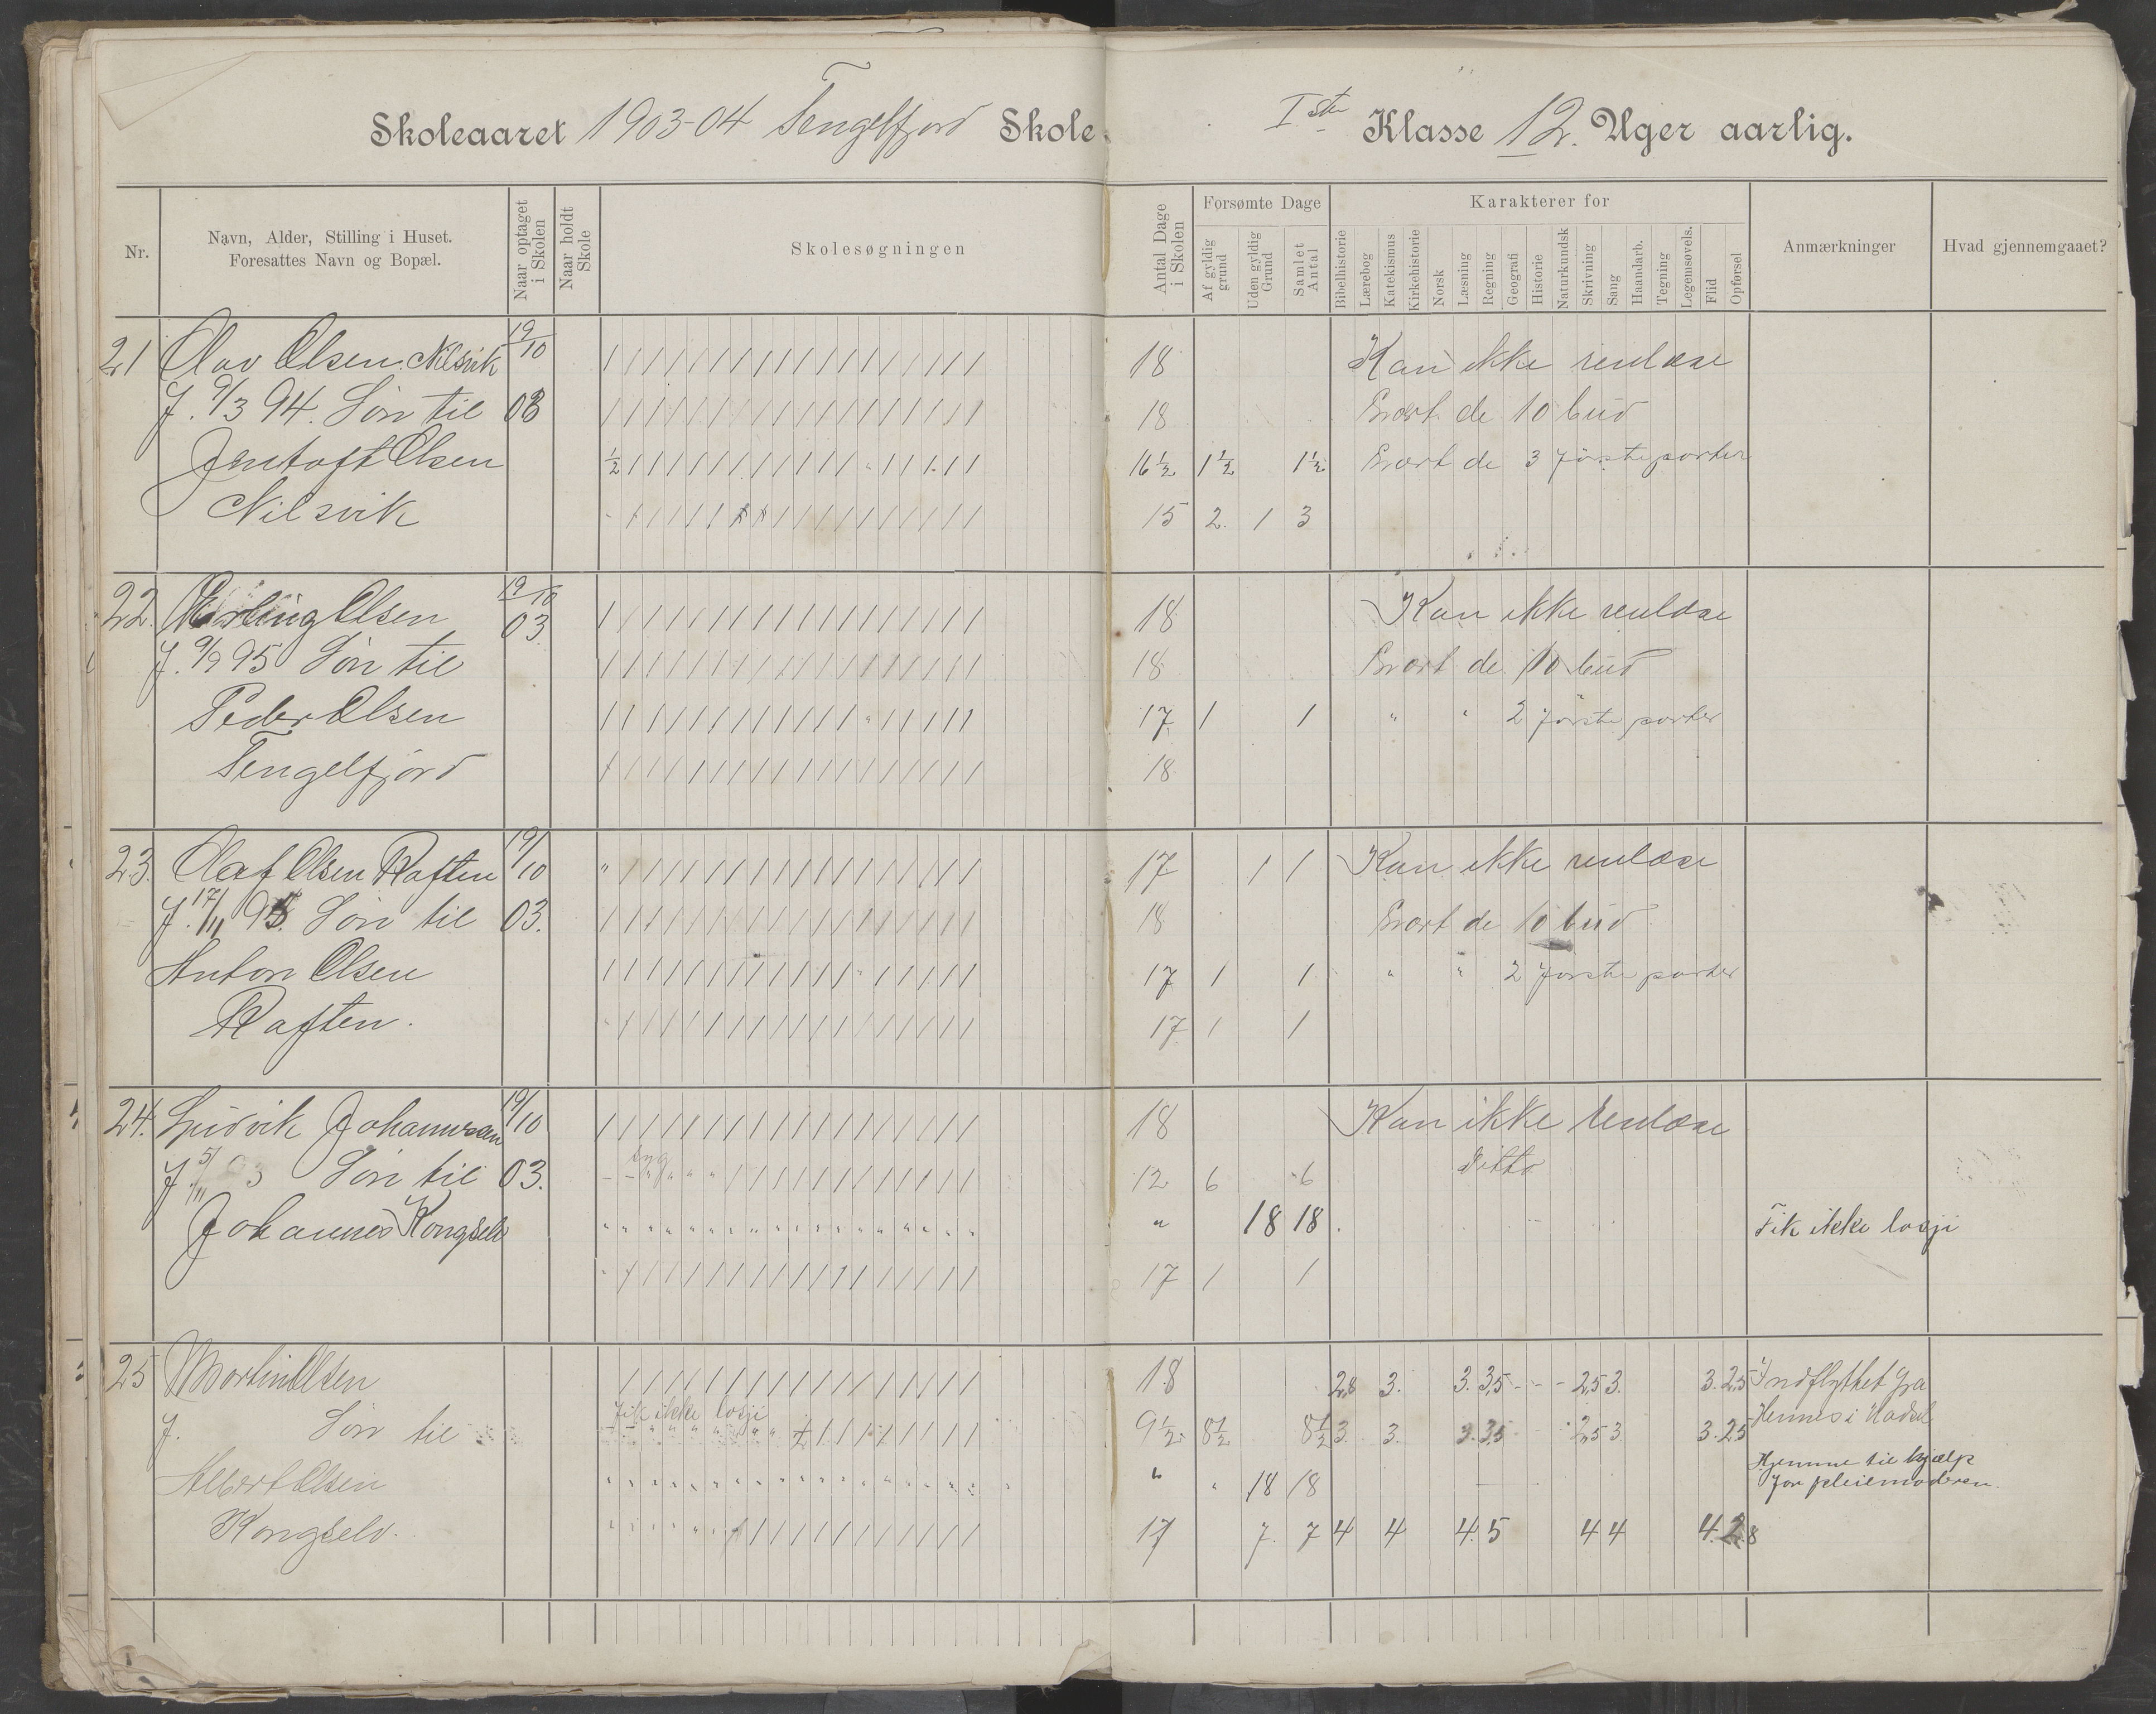 Skoleaaret 1903-04 Tengelfjord Skole.
Iste Klasse 12. Uger aarlig.
Nr.
Navn, Alder, Stilling i Huset.
Foresattes Navn og Bopæl.
Naar optaget
i Skolen
Naar holdt
Skole
Skolesøgningen
Antal Dage
i Skolen
Forsømte Dage
Af gyldig
grund
Uden gyldig
Grund
Samlet
Antal
Karakterer for
Bibelhistorie
Lærebog
Katekismus
Kirkehistorie
Norsk
Læsning
Regning
Geografi
Historie
Naturkundsk
Skrivning
Sang
Haandarb.
Tegning
Legemsøvels.
Flid
Opførsel
Anmærkninger
Hvad gjennemgaaet?
21 Olav Olsen Nilsvik 19/10 18 Kan ikke renlæse
f. 9/3 94. Søn til 03 18 Lært de 10 bud
Jentoft Olsen 1/2 16 1/2 1 1/2 1 1/2 Lært de 3 første parter
Nilsvik 15 2. 1 3
22. Erling Olsen 19/10 18 Kan ikke renlæse
f. 9/9 95 Søn til 03 18 Lært de 10 bud
Peder Olsen 17 1 1 " " 2 første parter
Tengelfjord 18
23. Olaf Olsen Raften 19/10 17 1 1 Kan ikke renlæse
f. 17/11 95. Søn til 03. 18 Lært de 10 bud
Anton Olsen 17 1 1 " " 2 første parter
Raften. 17 1 1
24. Ludvik Johannesen 19/10 18 Kan ikke renlæse
f. 5/11 3 Søn til 03. syg 12 6 6 Ditto
Johannes Kongselv " 18 18 Fik ikke losji
17 1 1
25 Martin Olsen 18 2,8 3. 3. 3,5 - - - 2,5 3. 3. 2,5 Indflyttet fra
f. Søn til Fik ikke losji 9 1/2 8 1/2 8 1/2 3. 3. 3. 3,5 2,5 3 3. 2,5 Hennes i Hadsel
Albert Olsen " " 18 18 Hjemme til hjælp
for pleiemoderen.
Kongselv. 17 7. 7 4 4 4. 5 4 4 4. 2.8